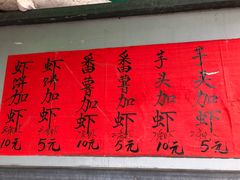 芋头加虾 5元
芋头加虾 10元
番薯加虾 5元
番薯加虾 10元
虾饼加虾 5元
虾饼加虾 10元